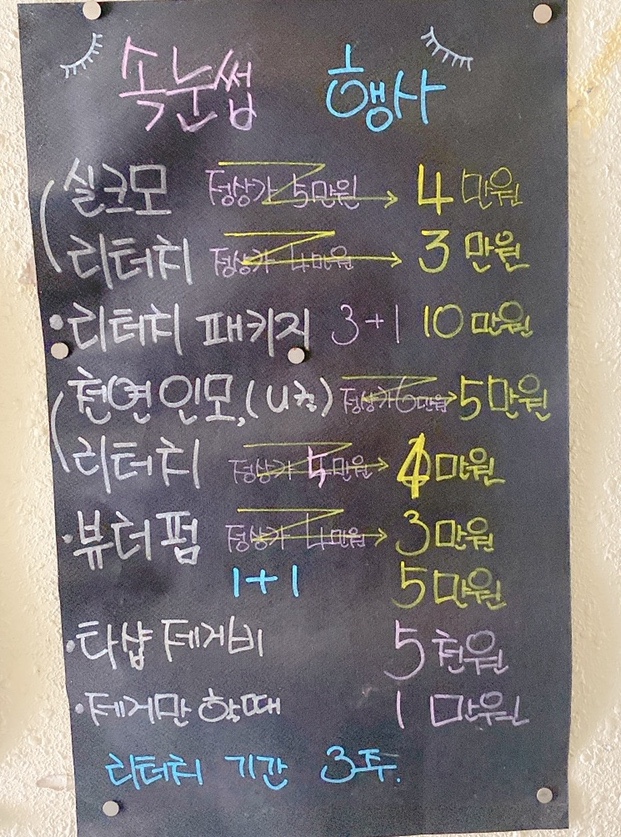 속눈썹 행사
실크모 정상가 5만원 → 4만원
리터치 정상가 4만원 → 3만원
·리터치 패키지 3+1 10만원
천연인모,(U컬) 정상가 6만원 → 5만원
리터치 정상가 만원 → 4만원
·뷰러펌 정상가 4만원 → 3만원
1+1 5만원
·타샵 제거비 5천원
·제거만 할때 1만원
리터치 기간 3주.